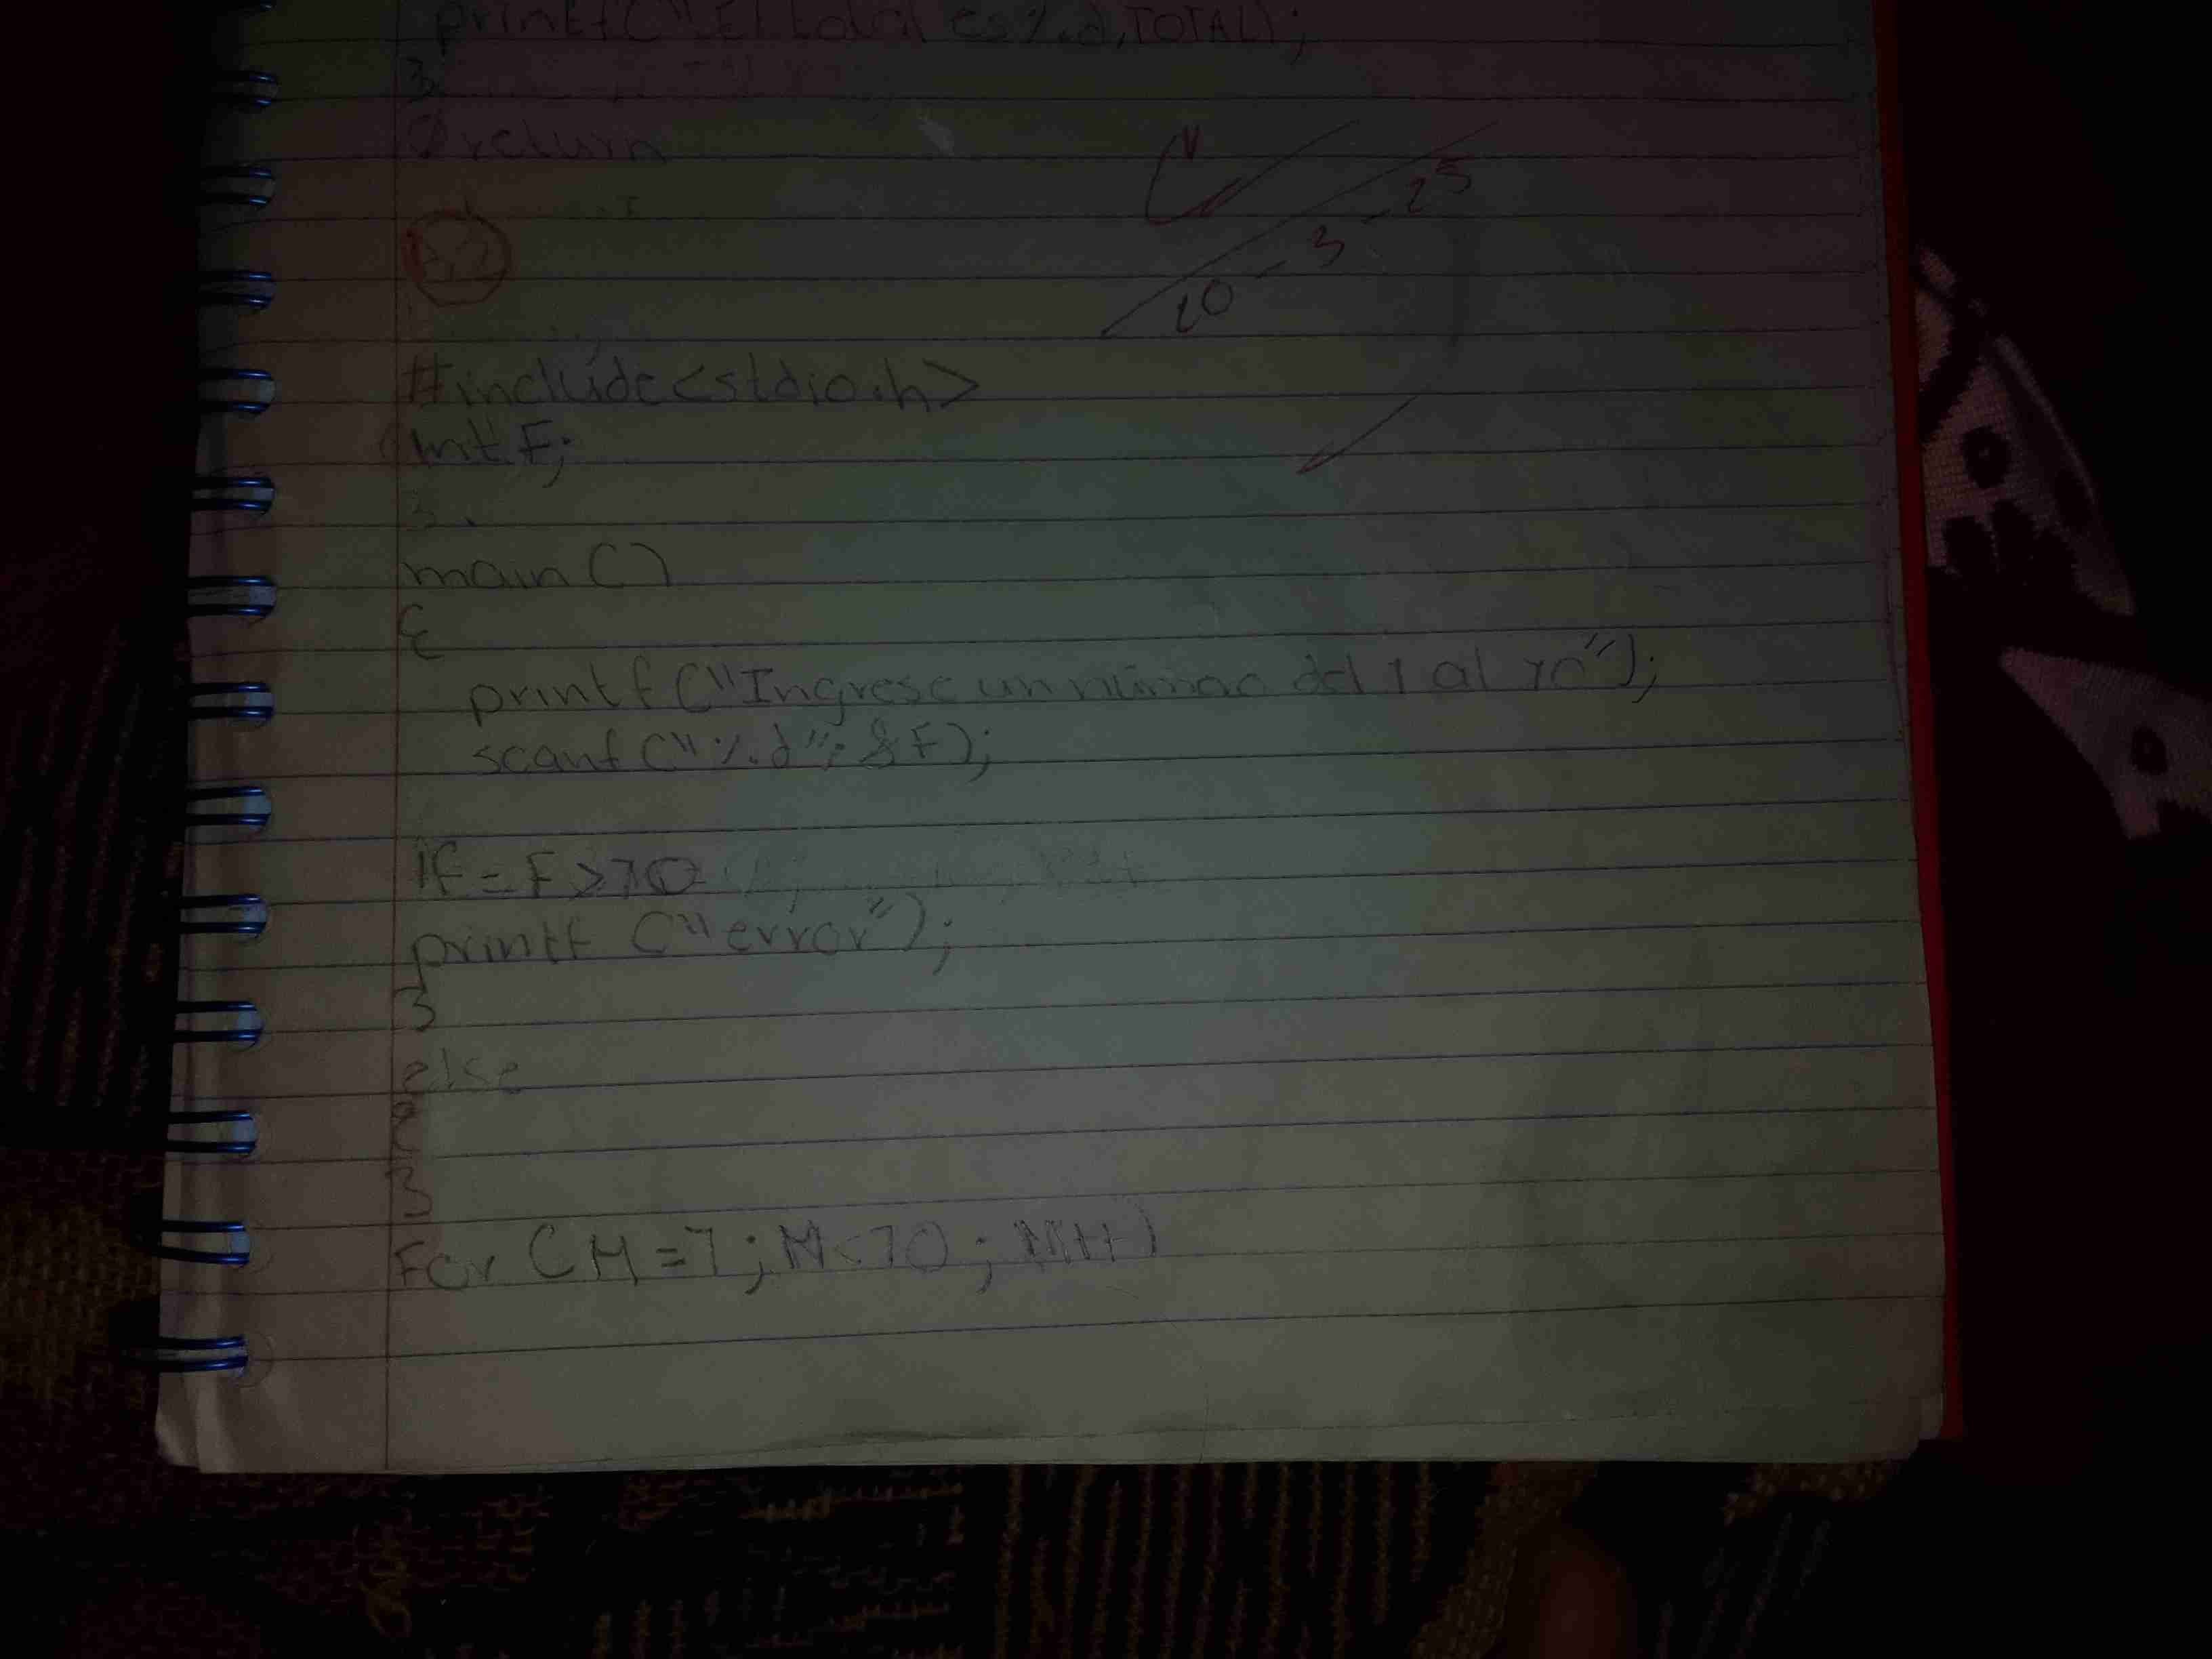 printf("El total es %d,TOTAL);
}
return
25
3
10
#include<stdio.h>
int F;
main()
{
printf("Ingrese un número del 1 al 10");
scanf("%d"; &F);
if = F >10
printf ("error");
}
else
{
}
For (M=1; M<10; M++)